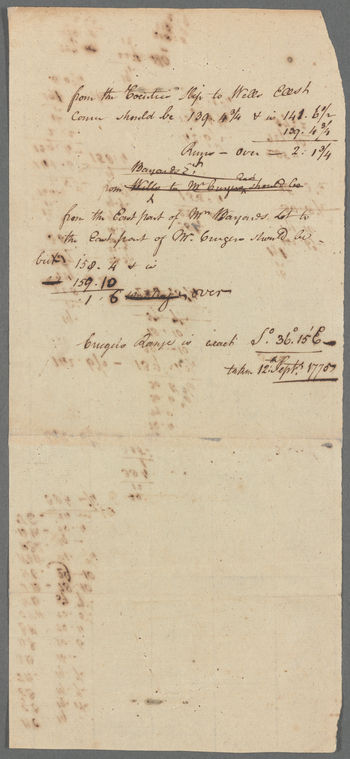 from the Coenties Slip to Wells East
Corner should be 139. 4 3/4 & is 141. 6 1/2
139. 4 3/4
Runs - over = 2: 1 3/4
Bayards
from Wells to Mr Crugers should be
from the East part of Mr Bayards Lot to
the East part of Mr. Crugers should be -
but 158. 4 & is
159. 10
1. 6 over
Crugers Range is exact So. 36°. 15' E
taken 12th Septr. 1775